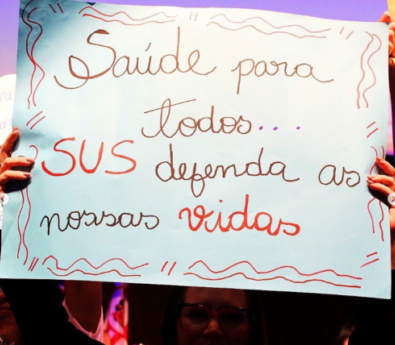 Saúde para
todos...
SUS defenda as
nossas vidas